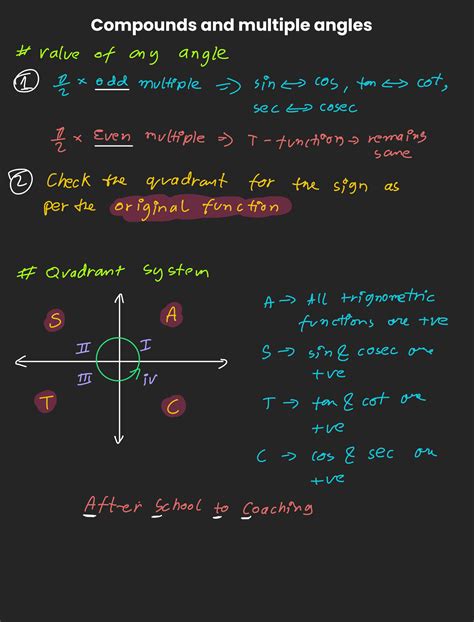 Compounds and multiple angles
# value of any angle
① π/2 × odd multiple ⇒ sin ↔ cos, tan ↔ cot,
sec ↔ cosec
π/2 × Even multiple ⇒ T-function → remains
same
② Check the quadrant for the sign as
per the original function
# Quadrant system
S A
II I
III iv
T C
A → All trignometric
functions are +ve
S → sin & cosec are
+ve
T → tan & cot are
+ve
C → cos & sec are
+ve
After School to Coaching